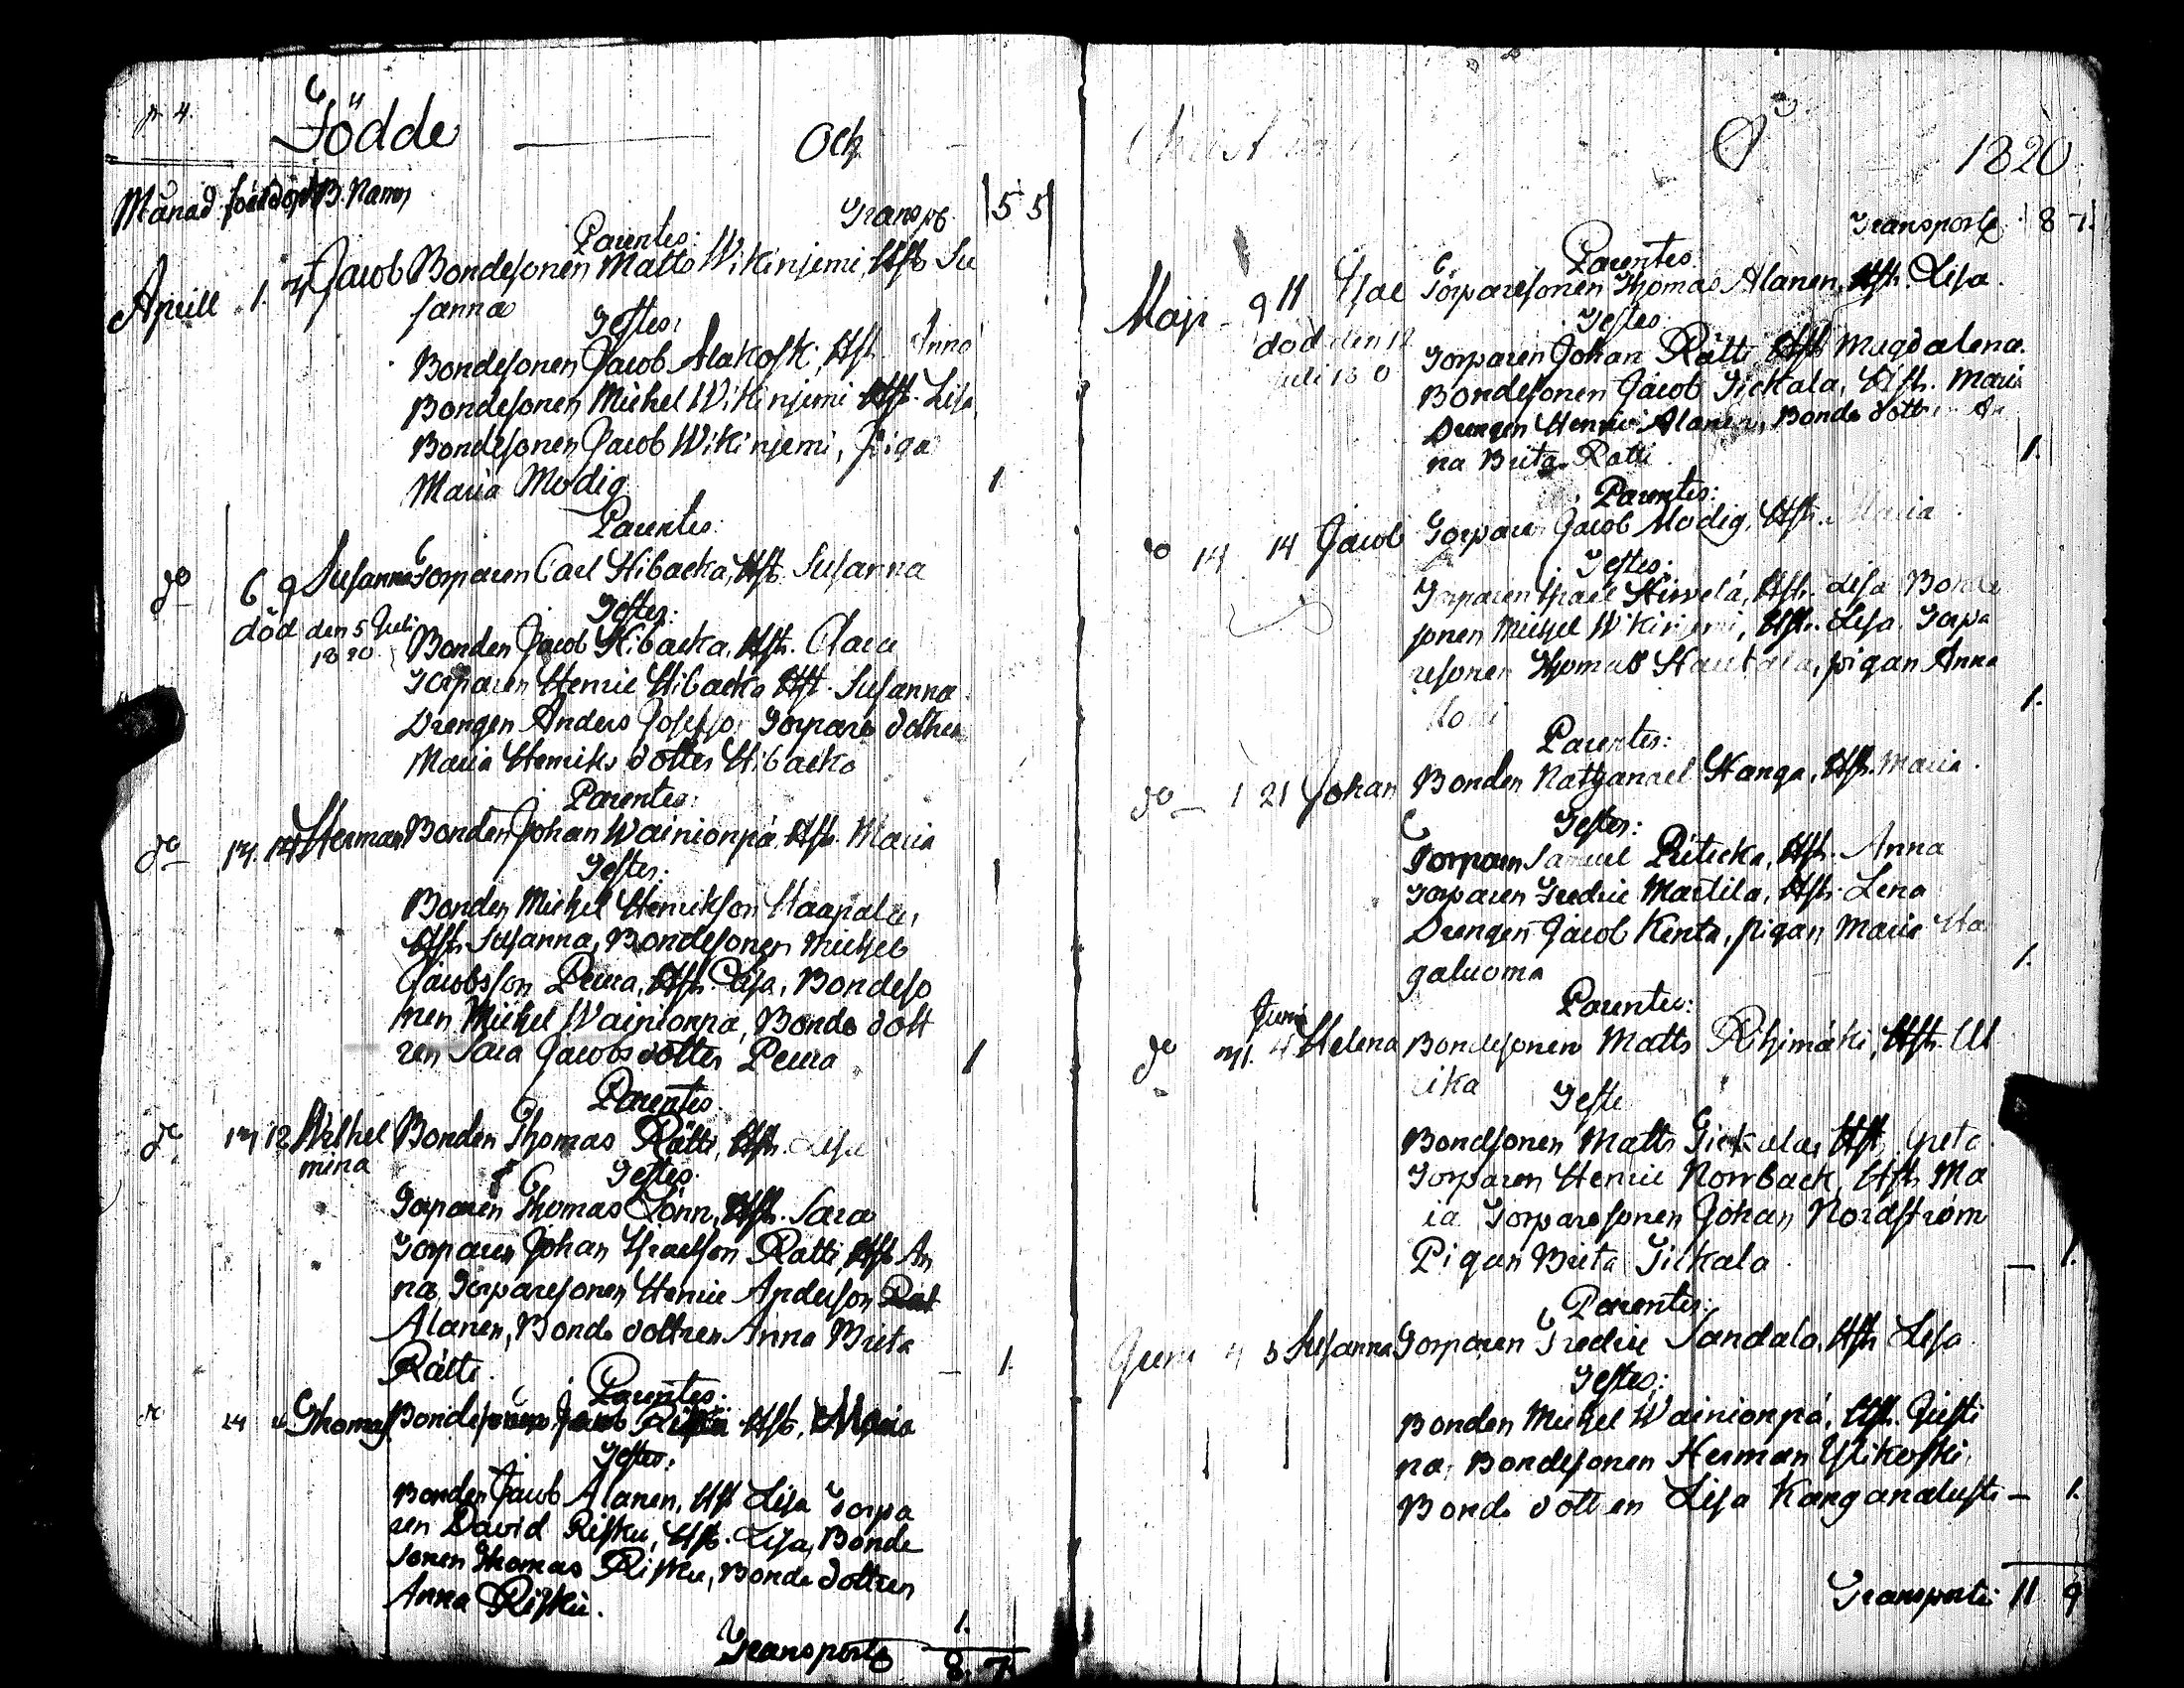 p. 4.
Födde — Och
Månad född döpt B. Namn
Transpt. 5 5
Parentes:
Aprill 1. Jacob Bondesonen Matts Wikinjemi, Hst. Su
sanna
Testes:
Bondesonen Jacob Alakosk, Hst. Anna
Bondesonen Michel Wikinjemi Hst. Lisa
Bondesonen Jacob Wikinjemi, piga
Maria Modig 1
Parentes:
do 6 9 Susanna Torparen Carl Hibacka, Hst. Susanna
död den 5 Juli
1820.
Testes:
Bonden Jacob Hibacka, Hst. Clara
Torparen Henric Hibacka Hst. Susanna
Drengen Anders Torpare dottren
Maria Henriks dotter Hibacka
Parentes:
do Herman Bonden Johan Wainionpä Hst. Maria
Testes:
Bonden Michel Henrikson Haapala,
Hst. Susanna, Bondesonen Michel
Jacobsson Peura, Hst. Lisa, Bondeso
nen Michel Wainionpä, Bonde dott
ren Sara Jacobs dotter Peura 1
Parentes
do 12 Wilhel
mina
Bonden Thomas Rätti, Hst. Lisa
Testes:
Torparen Thomas Lönn, Hst. Sara
Torparen Johan Israelson Rätti, Hst. An
na, Torparesonen Henric Anderson Rät
Alanen, Bonde dottren Anna Brita
Rätti. — 1.
Parentes:
do 24 Thomas Bondesonen Jacob Risku Hst. Maria
Testes:
Bonden Jacob Alanen, Hst Lisa Torpa
ren David Risku, Hst. Lisa, Bonde
sonen Thomas Risku, Bonde dottren
Anna Risku. 1.
Transporte 8. 7.
Christ 1820
Transporte 8 7.
Parentes
Maji 9 11 Isac Torparesonen Thomas Alanen, Hst. Lisa.
död den 12
Juli 18 0
Testes
Torparen Johan Rätti Hst Magdalena.
Bondesonen Jacob Tickala, Hst. Maria
Drengen Henric Alanen, Bonde dottren An
na Brita Rätti 1.
Parentes:
do 14 14 Jacob Torparen Jacob Modig, Hst. Maria
Testes:
Torparen Israel Hirvelä, Hst. Lisa Bonde
sonen Michel Wikinjemi, Hst. Lisa. Torpa
resonen Thomas Hautala, pigan Anna
1.
Parentes:
do 21 Johan Bonden Nathanael Hanga, Hst. Maria.
Testes:
Torparen Samuel Hst. Anna
Torparen Fredric Martila, Hst. Lena
Drengen Jacob Kenta, pigan Maria Ha
galuoma 1.
Parentes:
Juni
do 31. 4. Helena Bondesonen Matts Rihimäki, Hst. Ul
rika
Teste
Bondsonen Matts Tickala, Hst. Greta
Torparen Henric Norrback, Hst. Ma
ria Torparesonen Johan Nordström
Pigan Brita Tickala — 1.
Parentes:
Juni 4 5 Susanna Torparen Fredric Sandala, Hst. Lisa
Testes:
Bonden Michel Wainionpä, Hst. Justi
na, Bondesonen Herman Ylikoski,
Bonde dottren Lisa — 1.
Transporte 11 9